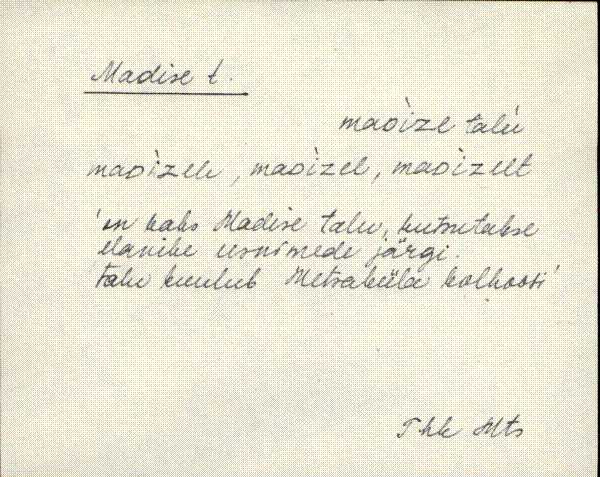 Madise t.
maDìze talù
maDìzele, maDìzel, maDìzelt
'on kaks Madise talu, kutsutakse
elanike eesnimede järgi.
talu kuulub Metsaküla kolhoosi'
Thk Mts